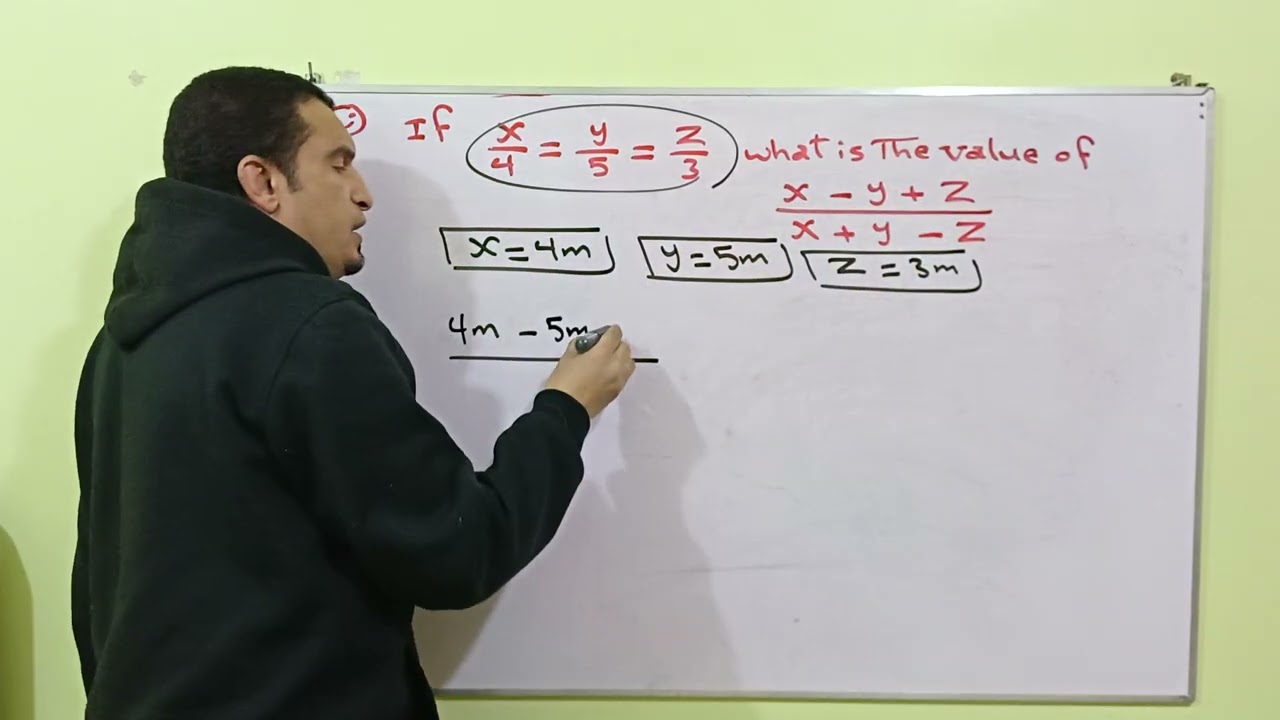 If x/4 = y/5 = z/3 what is The value of
x - y + z
x + y - z
x = 4m y = 5m z = 3m
4m - 5m